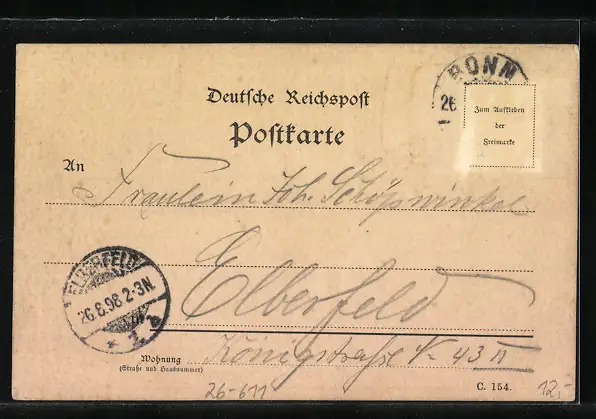 BONN
26
Deutsche Reichspost
Postkarte
Zum Aufkleben
der
Freimarke
An
Fräulein Joh. Schöpwinkel
Elberfeld
ELBERFELD
26.6.98 2-3N.
* 1 b
Wohnung
(Straße und Hausnummer)
Königstraße № 43 II
26-611
C. 154.
12,-